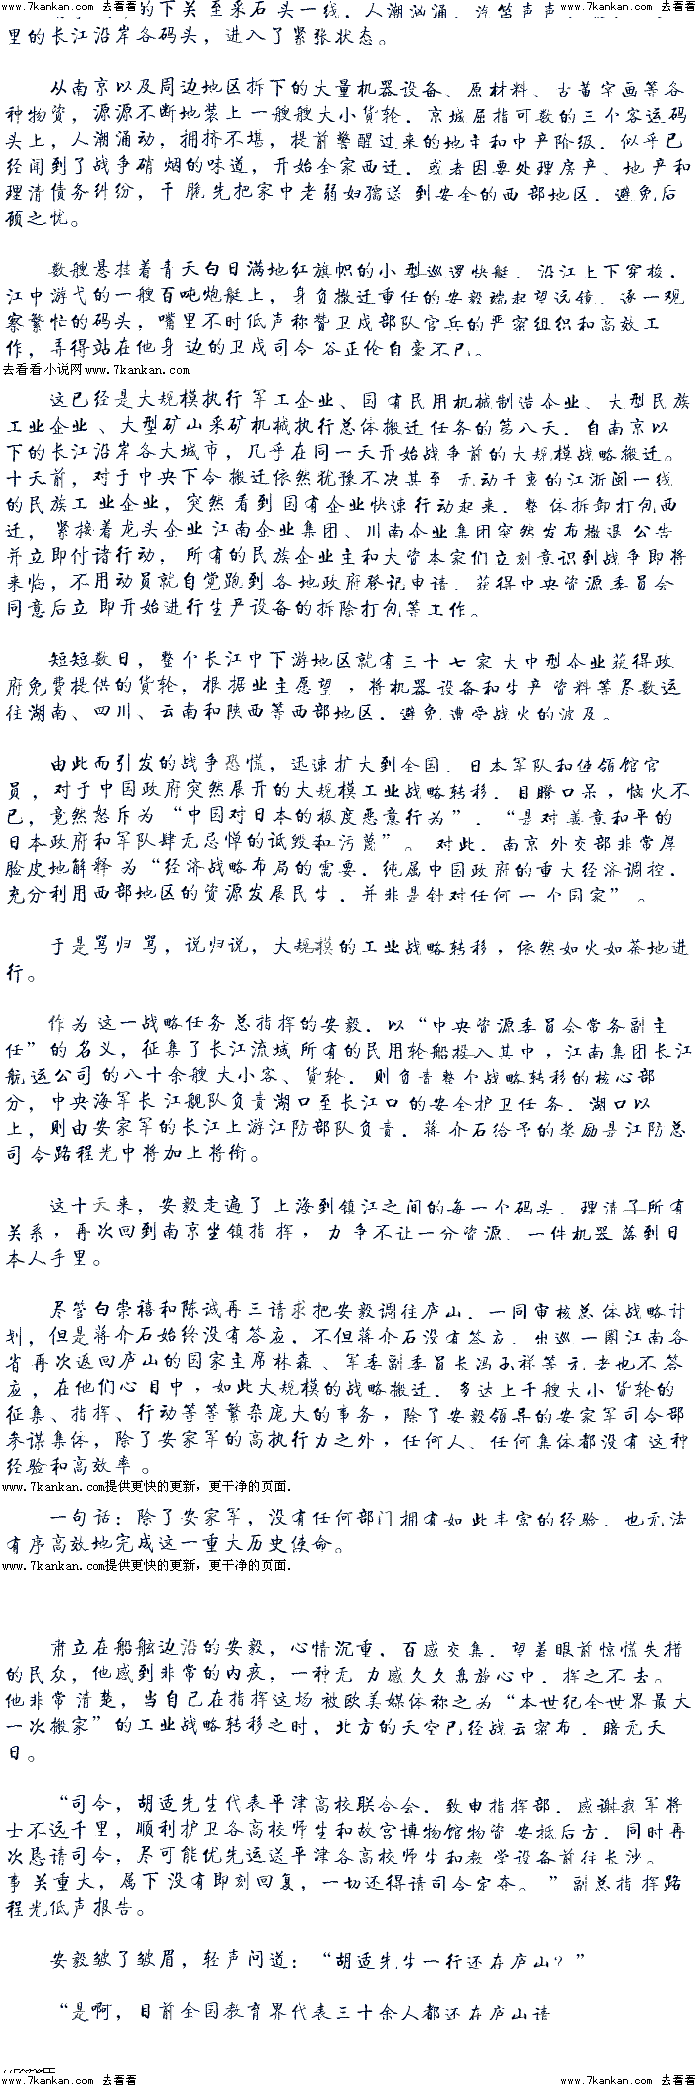 www.7kankan.com 去看看
www.7kankan.com 去看看
的下关至采石头一线，人潮汹涌，汽笛声声
里的长江沿岸各码头，进入了紧张状态。
从南京以及周边地区拆下的大量机器设备、原材料、古董字画等各
种物资，源源不断地装上一艘艘大小货轮．京城屈指可数的三个客运码
头上，人潮涌动，拥挤不堪，提前警醒过来的地主和中产阶级．似乎已
经闻到了战争硝烟的味道，开始全家西迁．或者因要处理房产、地产和
理清债务纠纷，干脆先把家中老弱妇孺送到安全的西部地区．避免后
顾之忧。
数艘悬挂着青天白日满地红旗帜的小型巡逻快艇．沿江上下穿梭．
江中游弋的一艘百吨炮艇上，身负搬迁重任的安毅端起望远镜．逐一观
察繁忙的码头，嘴里不时低声称赞卫戍部队官兵的严密组织和高效工
作，弄得站在他身边的卫戍司令谷正伦自豪不已。
去看看小说网www.7kankan.com
这已经是大规模执行军工企业、国有民用机械制造企业、大型民族
工业企业、大型矿山采矿机械执行总体搬迁任务的第八天．自南京以
下的长江沿岸各大城市，几乎在同一天开始战争前的大规模战略搬迁。
十天前，对于中央下令搬迁依然犹豫不决甚至无动于衷的江浙闽一线
的民族工业企业，突然看到国有企业快速行动起来．整体拆卸打包西
迁，紧接着龙头企业江南企业集团、川南企业集团突然发布撤退公告
并立即付诸行动，所有的民族企业主和大资本家们立刻意识到战争即将
来临，不用动员就自觉跑到各地政府登记申请．获得中央资源委员会
同意后立即开始进行生产设备的拆除打包等工作。
短短数日，整个长江中下游地区就有三十七家大中型企业获得政
府免费提供的货轮，根据业主愿望，将机器设备和生产资料等尽数运
往湖南、四川、云南和陕西等西部地区．避免遭受战火的波及。
由此而引发的战争恐慌，迅速扩大到全国．日本军队和使领馆官
员，对于中国政府突然展开的大规模工业战略转移．目瞪口呆，恼火不
已，竟然怒斥为“中国对日本的极度恶意行为”．“是对善意和平的
日本政府和军队肆无忌惮的诋毁和污蔑”。对此．南京外交部非常厚
脸皮地解释为“经济战略布局的需要．纯属中国政府的重大经济调控．
充分利用西部地区的资源发展民生．并非是针对任何一个国家”。
于是骂归骂，说归说，大规模的工业战略转移，依然如火如荼地进
行。
作为这一战略任务总指挥的安毅．以“中央资源委员会常务副主
任”的名义，征集了长江流域所有的民用轮船投入其中，江南集团长江
航运公司的八十余艘大小客、货轮．则负责整个战略转移的核心部
分，中央海军长江舰队负责湖口至长江口的安全护卫任务．湖口以
上，则由安家军的长江上游江防部队负责．蒋介石给予的奖励是江防总
司令路程光中将加上将衔。
这十天来，安毅走遍了上海到镇江之间的每一个码头．理清了所有
关系，再次回到南京坐镇指挥，力争不让一分资源．一件机器落到日
本人手里。
尽管白崇禧和陈诚再三请求把安毅调往庐山．一同审核总体战略计
划，但是蒋介石始终没有答应．不但蒋介石没有答应．出巡一圈江南各
省再次返回庐山的国家主席林森、军委副委员长冯玉祥等元老也不答
应，在他们心目中，如此大规模的战略搬迁．多达上千艘大小货轮的
征集、指挥、行动等等繁杂庞大的事务，除了安毅领导的安家军司令部
参谋集体，除了安家军的高执行力之外，任何人、任何集体都没有这种
经验和高效率。
www.7kankan.com提供更快的更新，更干净的页面.
一句话：除了安家军，没有任何部门拥有如此丰富的经验．也无法
有序高效地完成这一重大历史使命。
www.7kankan.com提供更快的更新，更干净的页面.
肃立在船舷边沿的安毅，心情沉重．百感交集．望着眼前惊慌失措
的民众，他感到非常的内疚，一种无力感久久萦旋心中．挥之不去。
他非常清楚，当自己在指挥这场被欧美媒体称之为“本世纪全世界最大
一次搬家”的工业战略转移之时，北方的天空已经战云密布．暗无天
日。
“司令，胡适先生代表平津高校联合会．致电指挥部．感谢我军将
士不远千里，顺利护卫各高校师生和故宫博物馆物资安抵后方．同时再
次恳请司令，尽可能优先运送平津各高校师生和教学设备前往长沙。
事关重大，属下没有即刻回复，一切还得请司令定夺。”副总指挥路
程光低声报告。
安毅皱了皱眉，轻声问道：“胡适先生一行还在庐山？”
“是啊，目前全国教育界代表三十余人都还在庐山请
www.7kankan.com 去看看
www.7kankan.com 去看看